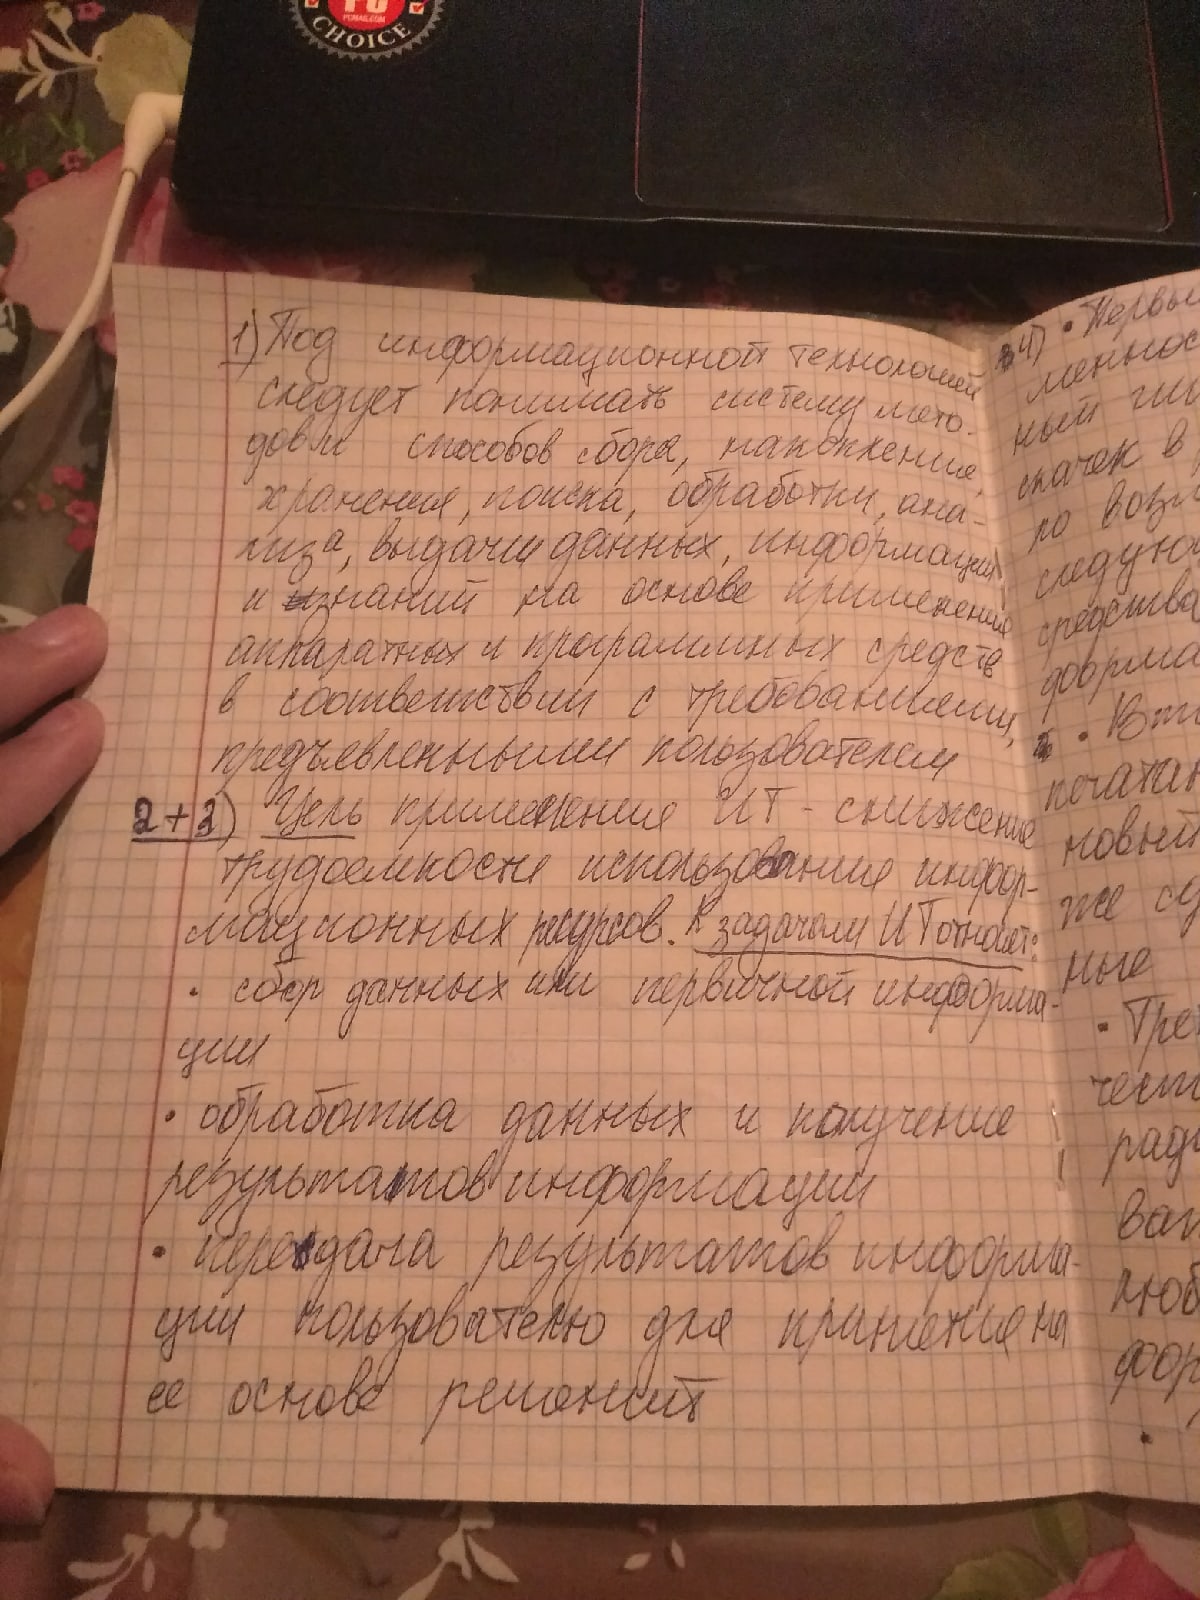 PCMAG.COM
CHOICE
1) Под информационной технологией
следует понимать систему мето-
дов и способов сбора, накопления,
хранения, поиска, обработки, ана-
лиза, выдачи данных, информации
и знаний на основе применения
аппаратных и программных средств
в соответствии с требованиями,
предъявленными пользователем
2+3) Цель применения ИТ - снижение
трудоемкости использования инфор-
мационных ресурсов. К задачам ИТ относят:
• сбор данных или первичной информа-
ции
• обработка данных и получение
результатов информации
• передача результатов информа-
ции пользователю для принятия на
ее основе решений
4) • Первы
меннос
ный
скачек в
по воз
следую
средства
• Вт
печатан
новый
же
ные
• Тре
чест
ради
ват
люб
фор